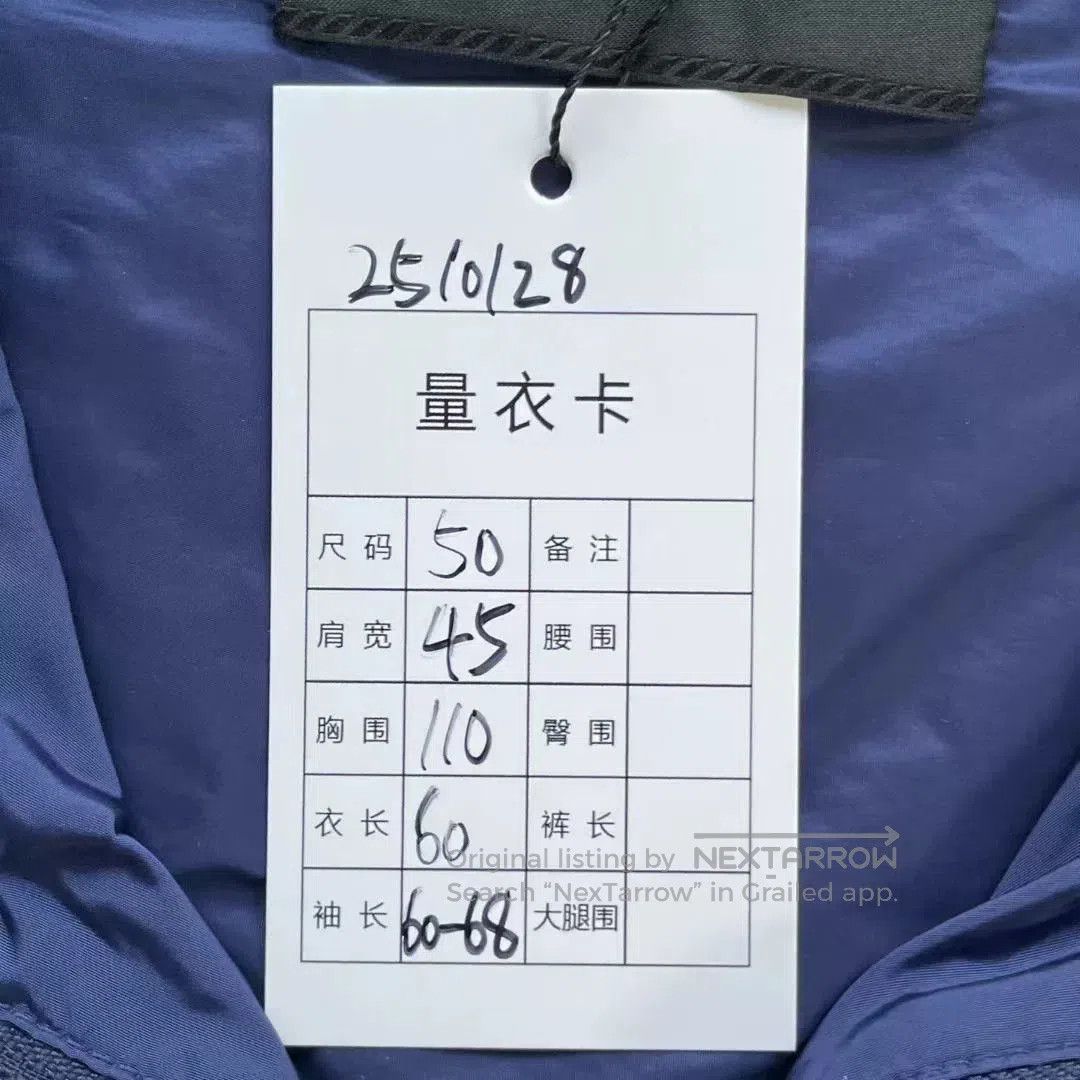 251028
量衣卡
尺码 50 备注
肩宽 45 腰围
胸围 110 臀围
衣长 60 裤长
Original listing by NEXTARROW
Search “NexTarrow” in Grailed app.
袖长 60-68 大腿围